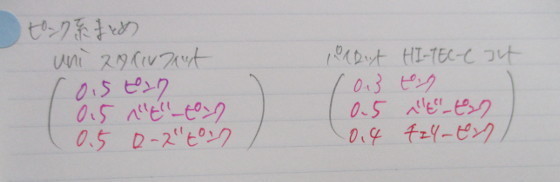 ピンク系まとめ
uni スタイルフィット
0.5 ピンク
0.5 ベビーピンク
0.5 ローズピンク
パイロット HI-TEC-C コレト
0.3 ピンク
0.5 ベビーピンク
0.4 チェリーピンク